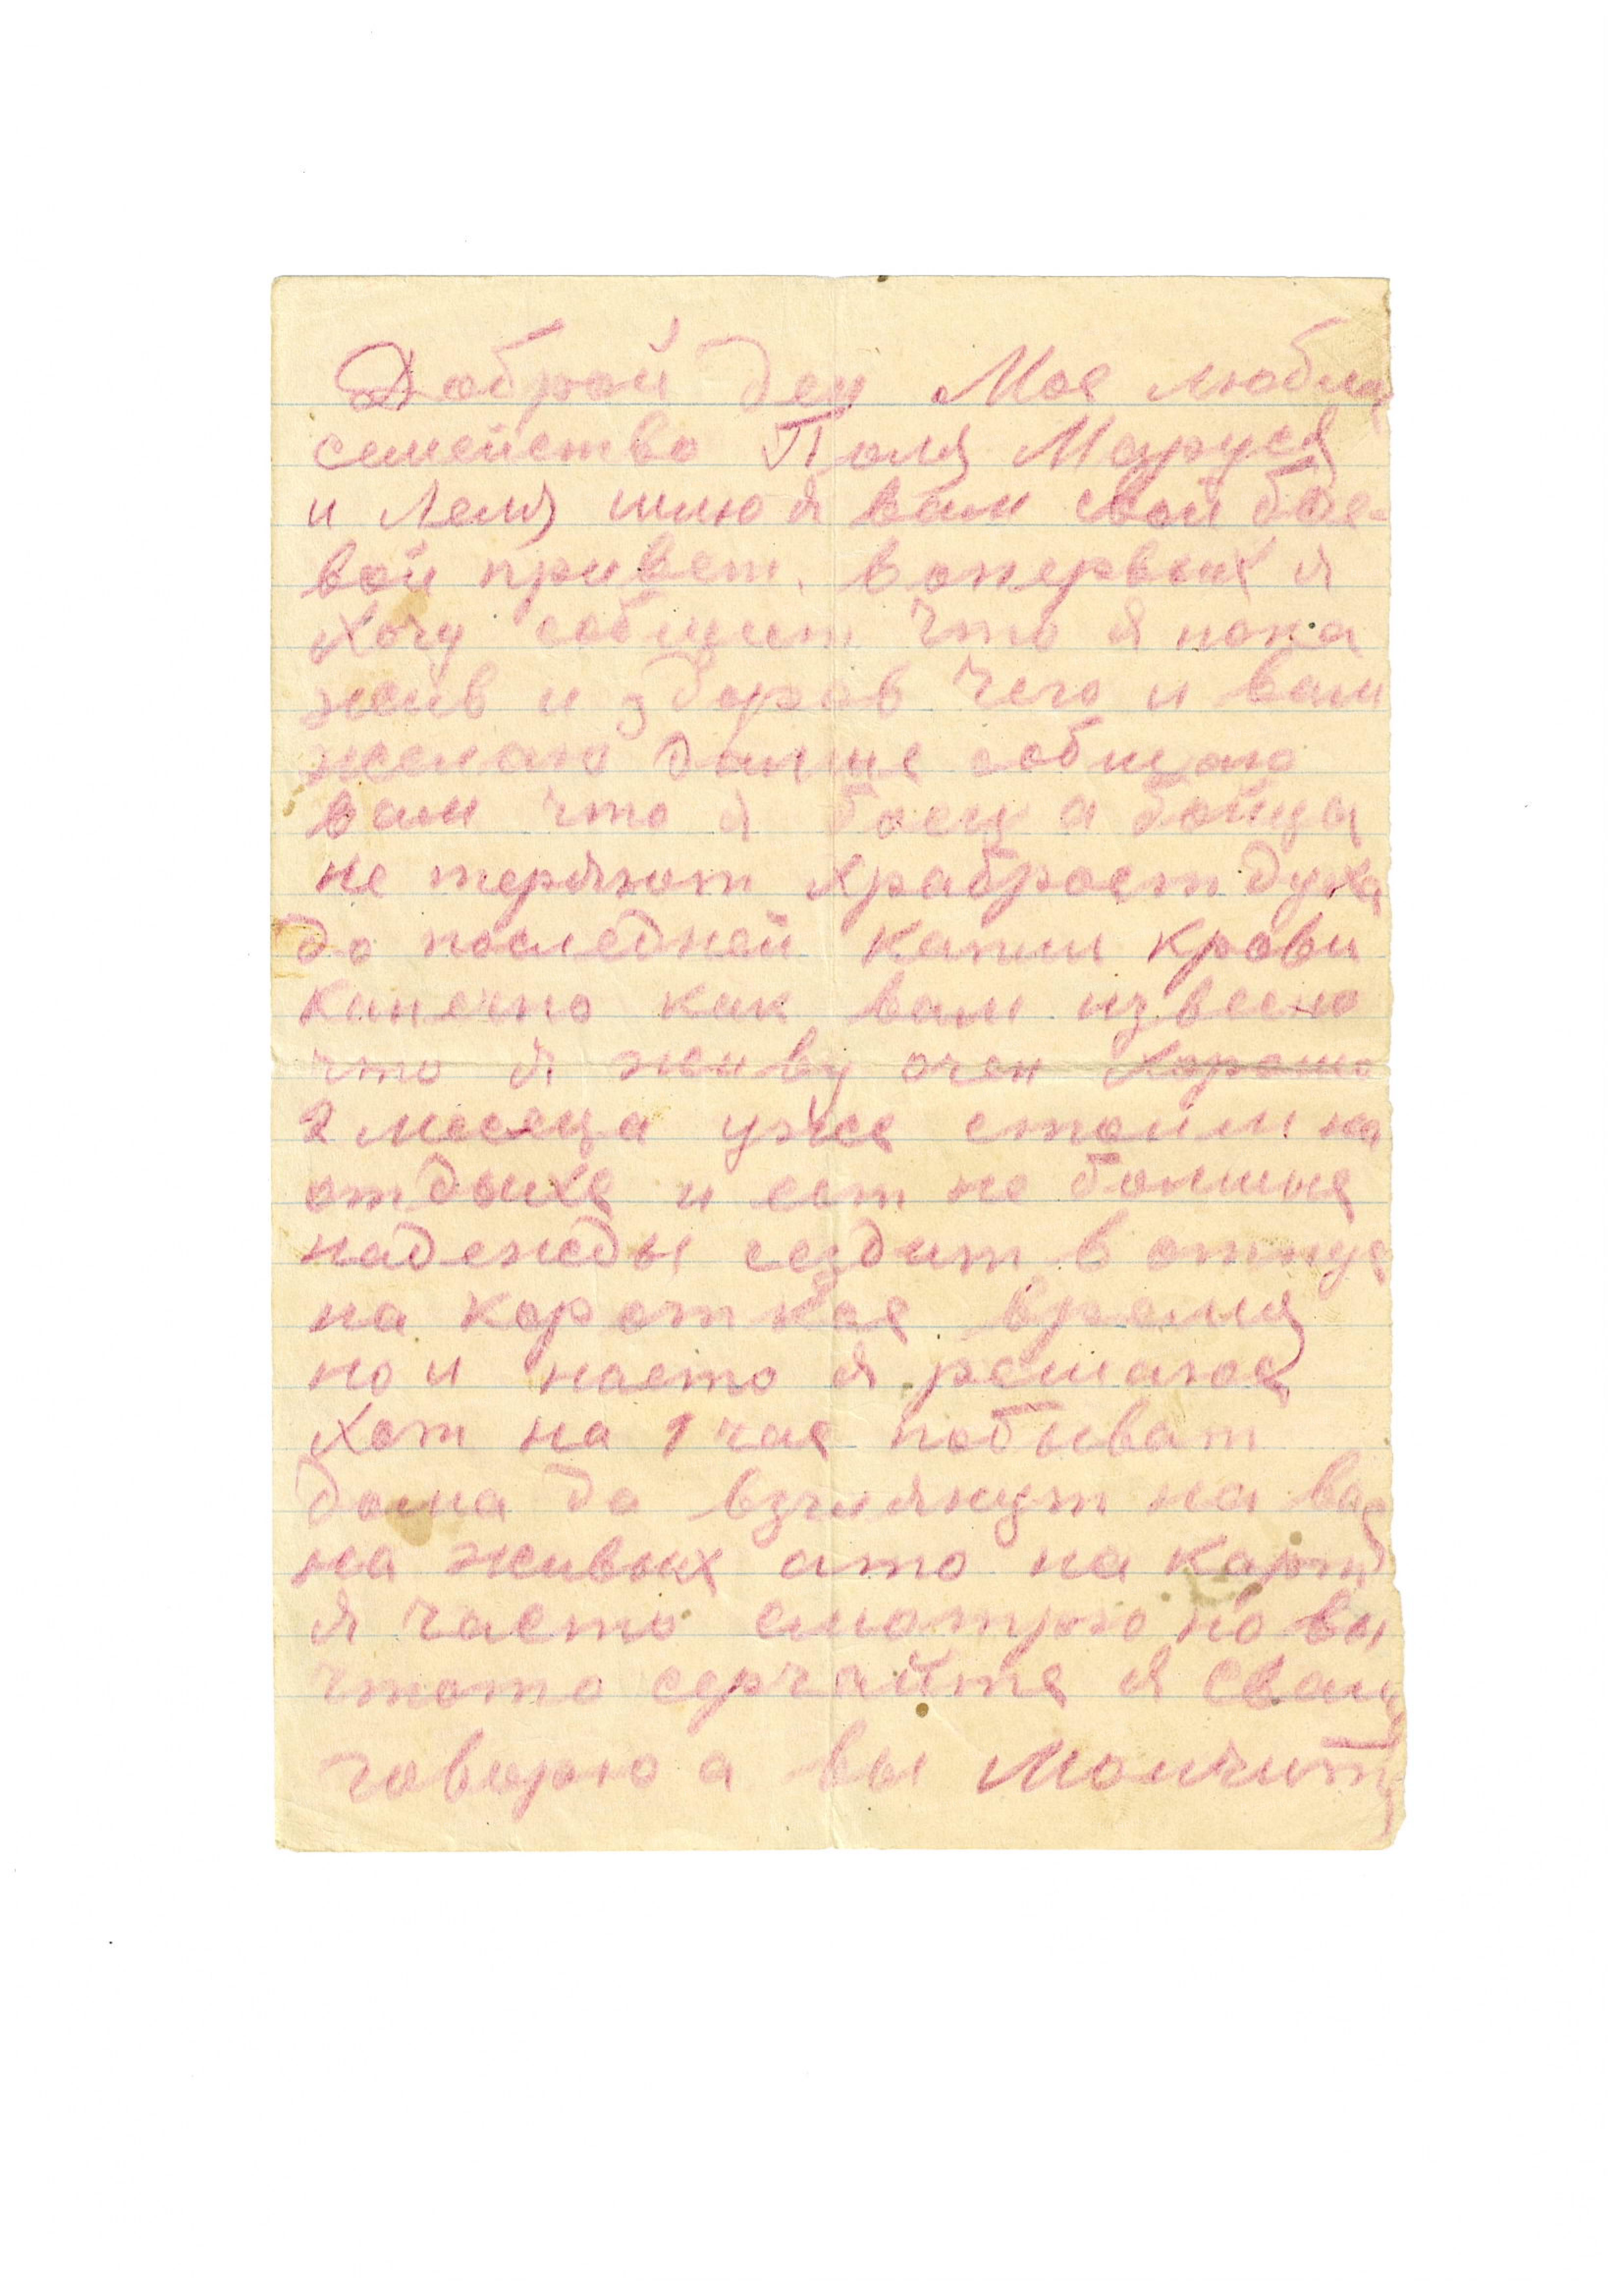 Доброй ден Мое любля
семейство Поля Маруся
и Леля шлю я вам свой бое-
вой привет. вопервых я
хочу собщит что я пока
жив и здоров чего и вам
желаю далше собщаю
вам что я боец а бойцы
не теряют храброст духа
до последней капли крови
канечно как вам извесно
что я живу очен хорошо
2 месеца уже стоим на
отдыхе и ест не болшые
надежды сездит в отпус
на короткое время
но и насто я решаюс
хот на 1 час побыват
дома да взглянут на вас
на живых ато на карт
я часто смотрю но вы
чтото серчайте я свами
говорю а вы молчите